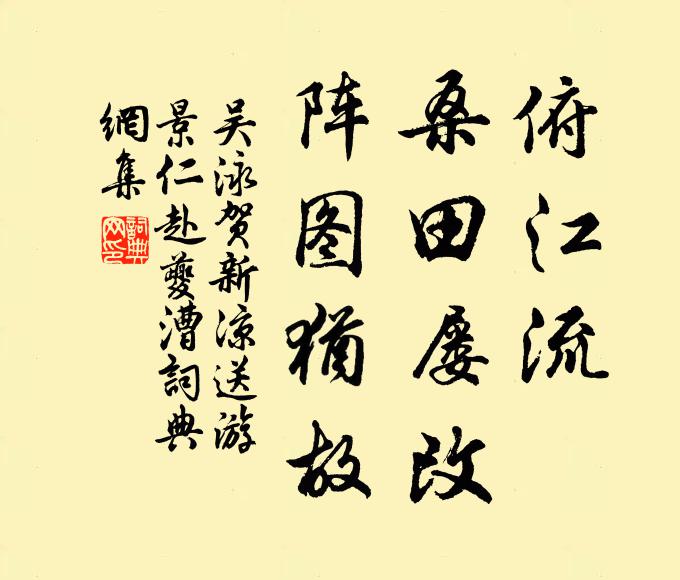 俯江流
桑田屡改
阵图犹故
吴泳贺新凉送游
景仁赴夔漕词典
網集
詞典網印